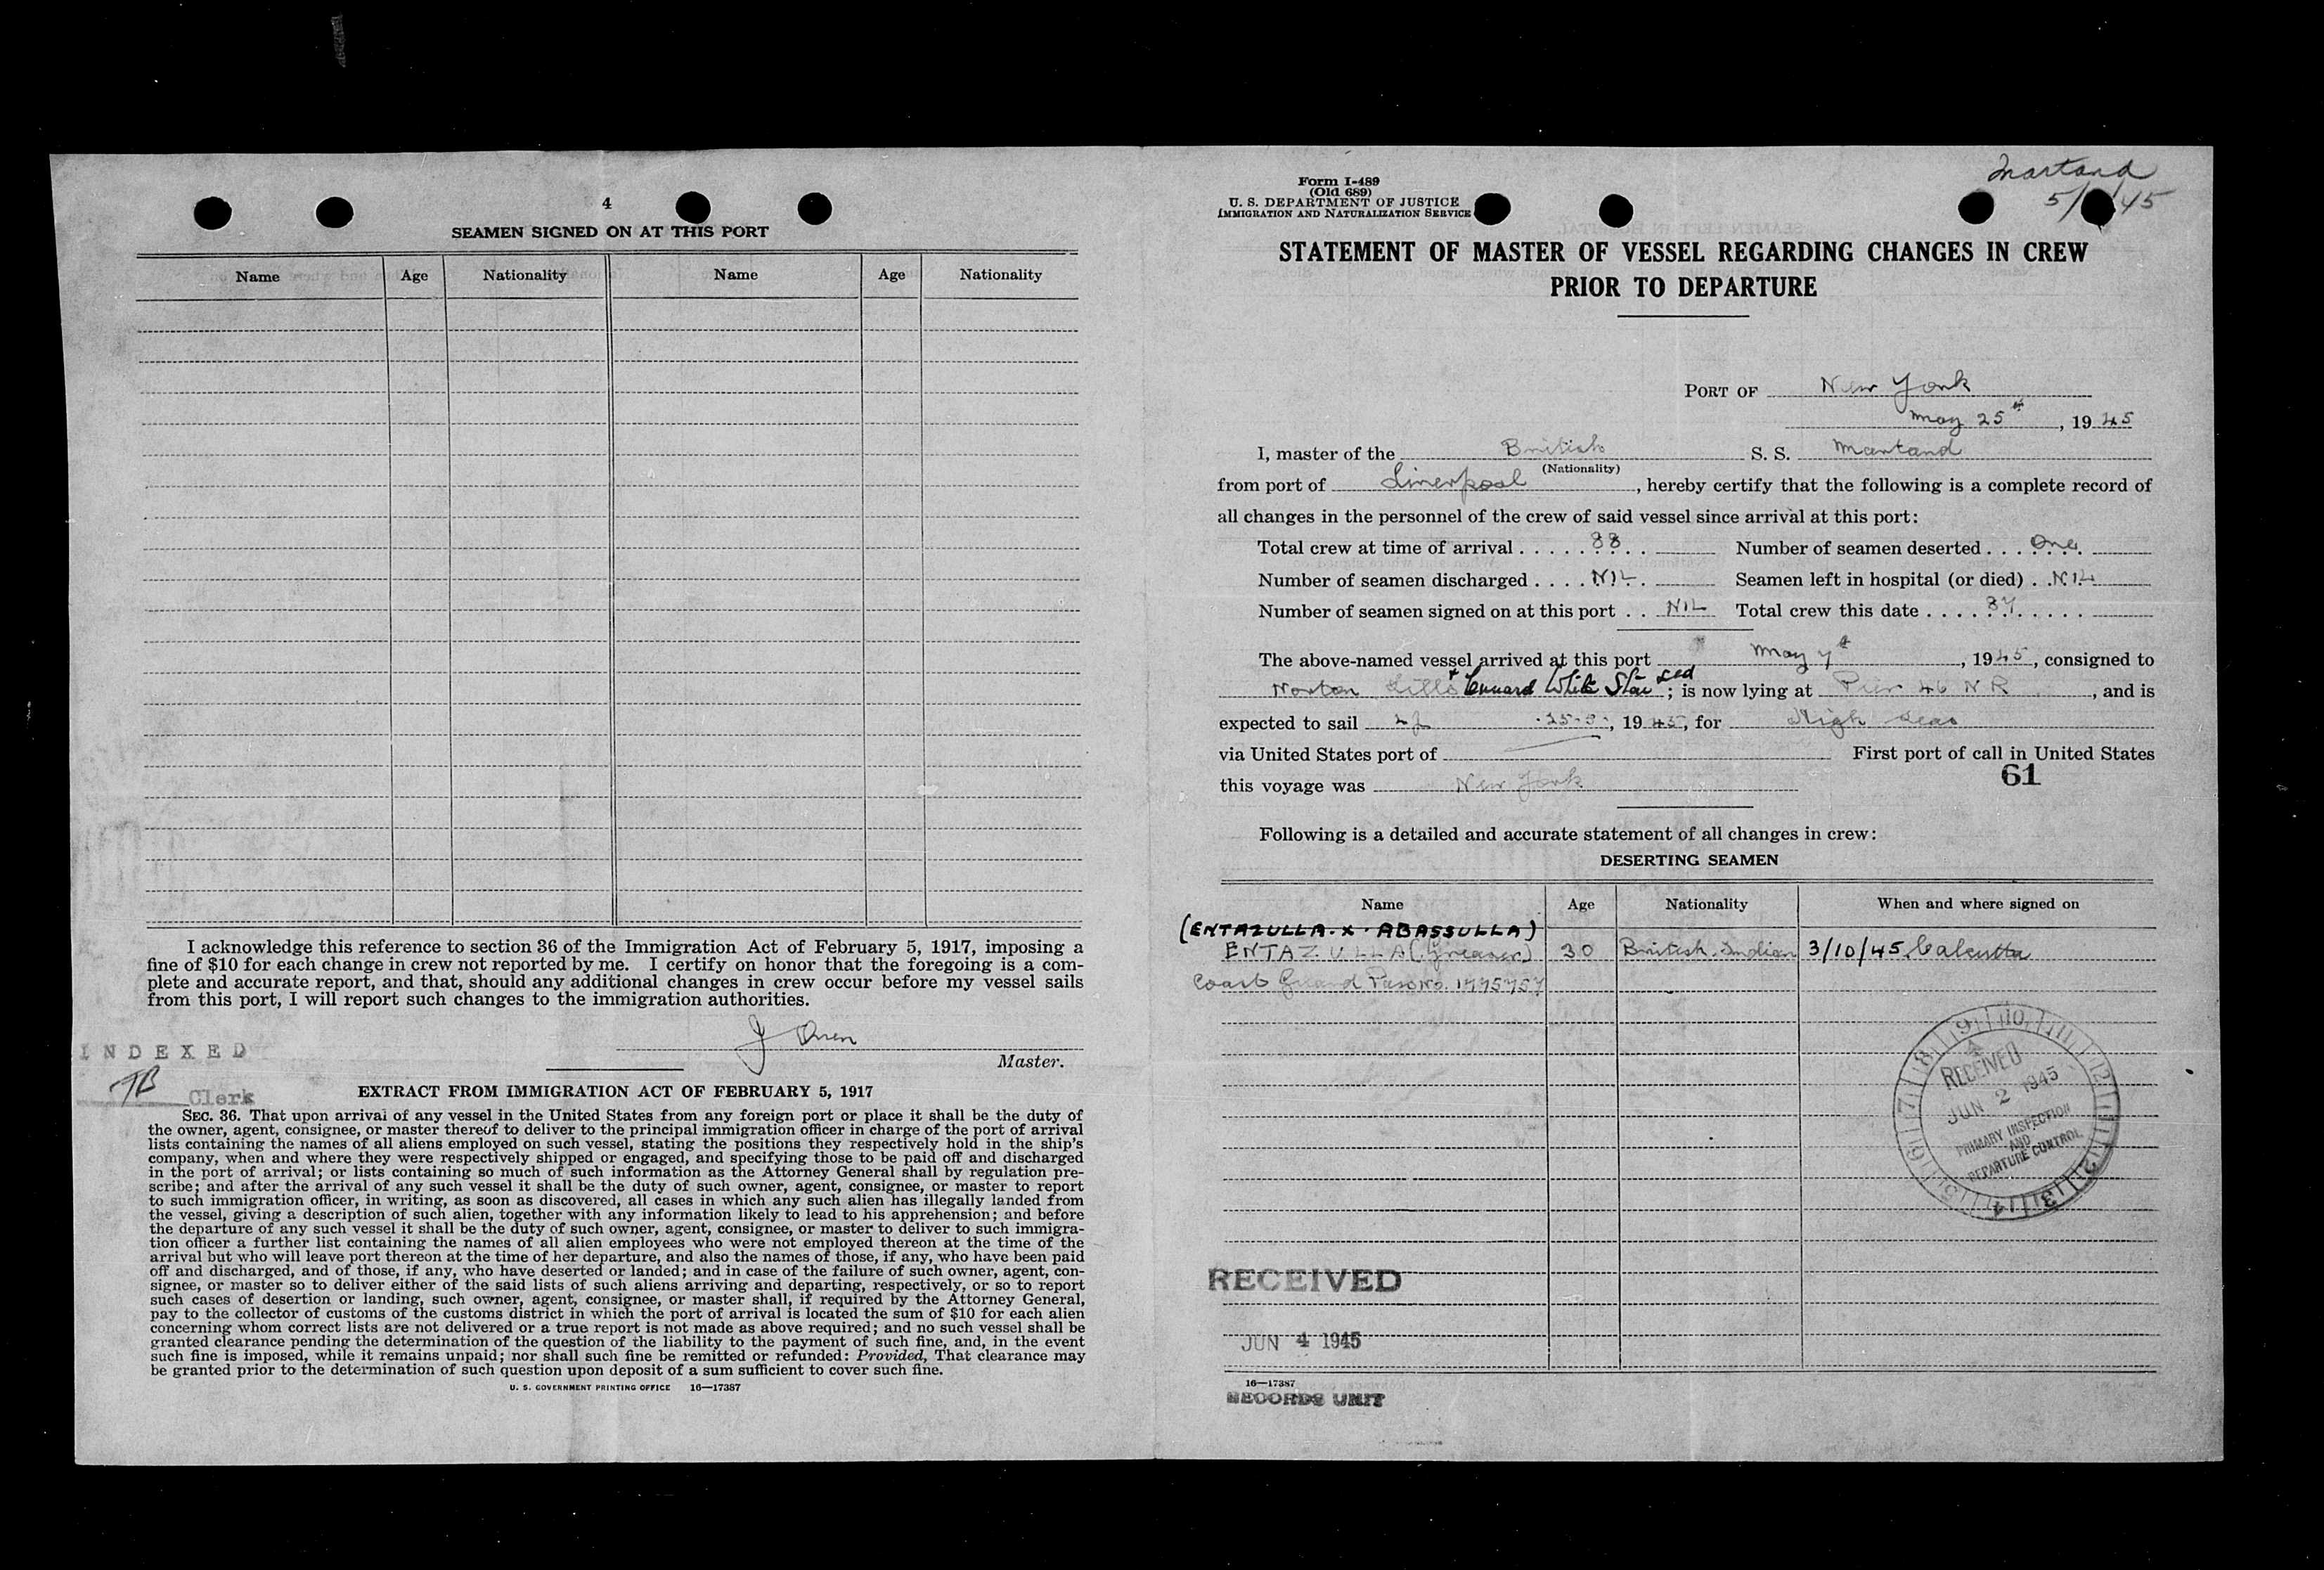 4
SEAMEN SIGNED ON AT THIS PORT
Name Age Nationality Name Age Nationality
I acknowledge this reference to section 36 of the Immigration Act of February 5, 1917, imposing a
fine of $10 for each change in crew not reported by me. I certify on honor that the foregoing is a com-
plete and accurate report, and that, should any additional changes in crew occur before my vessel sails
from this port, I will report such changes to the immigration authorities.
J Owen
Master.
INDEXED
TB
Clerk
EXTRACT FROM IMMIGRATION ACT OF FEBRUARY 5, 1917
SEC. 36. That upon arrival of any vessel in the United States from any foreign port or place it shall be the duty of
the owner, agent, consignee, or master thereof to deliver to the principal immigration officer in charge of the port of arrival
lists containing the names of all aliens employed on such vessel, stating the positions they respectively hold in the ship's
company, when and where they were respectively shipped or engaged, and specifying those to be paid off and discharged
in the port of arrival; or lists containing so much of such information as the Attorney General shall by regulation pre-
scribe; and after the arrival of any such vessel it shall be the duty of such owner, agent, consignee, or master to report
to such immigration officer, in writing, as soon as discovered, all cases in which any such alien has illegally landed from
the vessel, giving a description of such alien, together with any information likely to lead to his apprehension; and before
the departure of any such vessel it shall be the duty of such owner, agent, consignee, or master to deliver to such immigra-
tion officer a further list containing the names of all alien employees who were not employed thereon at the time of the
arrival but who will leave port thereon at the time of her departure, and also the names of those, if any, who have been paid
off and discharged, and of those, if any, who have deserted or landed; and in case of the failure of such owner, agent, con-
signee, or master so to deliver either of the said lists of such aliens arriving and departing, respectively, or so to report
such cases of desertion or landing, such owner, agent, consignee, or master shall, if required by the Attorney General,
pay to the collector of customs of the customs district in which the port of arrival is located the sum of $10 for each alien
concerning whom correct lists are not delivered or a true report is not made as above required; and no such vessel shall be
granted clearance pending the determination of the question of the liability to the payment of such fine, and, in the event
such fine is imposed, while it remains unpaid; nor shall such fine be remitted or refunded: Provided, That clearance may
be granted prior to the determination of such question upon deposit of a sum sufficient to cover such fine.
U. S. GOVERNMENT PRINTING OFFICE 16—17387
Martand
5/ /45
Form I-489
(Old 689)
U. S. DEPARTMENT OF JUSTICE
IMMIGRATION AND NATURALIZATION SERVICE
STATEMENT OF MASTER OF VESSEL REGARDING CHANGES IN CREW
PRIOR TO DEPARTURE
PORT OF New York
May 25th, 1945
I, master of the British S. S. Martand
(Nationality)
from port of Liverpool, hereby certify that the following is a complete record of
all changes in the personnel of the crew of said vessel since arrival at this port:
Total crew at time of arrival 88 Number of seamen deserted One
Number of seamen discharged NIL Seamen left in hospital (or died) NIL
Number of seamen signed on at this port NIL Total crew this date 87
The above-named vessel arrived at this port May 7th, 1945, consigned to
Norton Lilly + Cunard White Star Ltd; is now lying at Pier 46 N R, and is
expected to sail 25-5-, 1945, for High Seas
via United States port of First port of call in United States
this voyage was New York
61
Following is a detailed and accurate statement of all changes in crew:
DESERTING SEAMEN
Name Age Nationality When and where signed on
(ENTAZULLA. X. ABASSULLA)
ENTAZULLA (Greaser) 30 British Indian 3/10/45 Calcutta
Coast Guard Pass No. 1775757
9 10 11 12 1 2 3 4 5 6 7 8
RECEIVED
JUN 2 1945
PRIMARY INSPECTION
AND
DEPARTURE CONTROL
RECEIVED
JUN 4 1945
16—17387
RECORDS UNIT